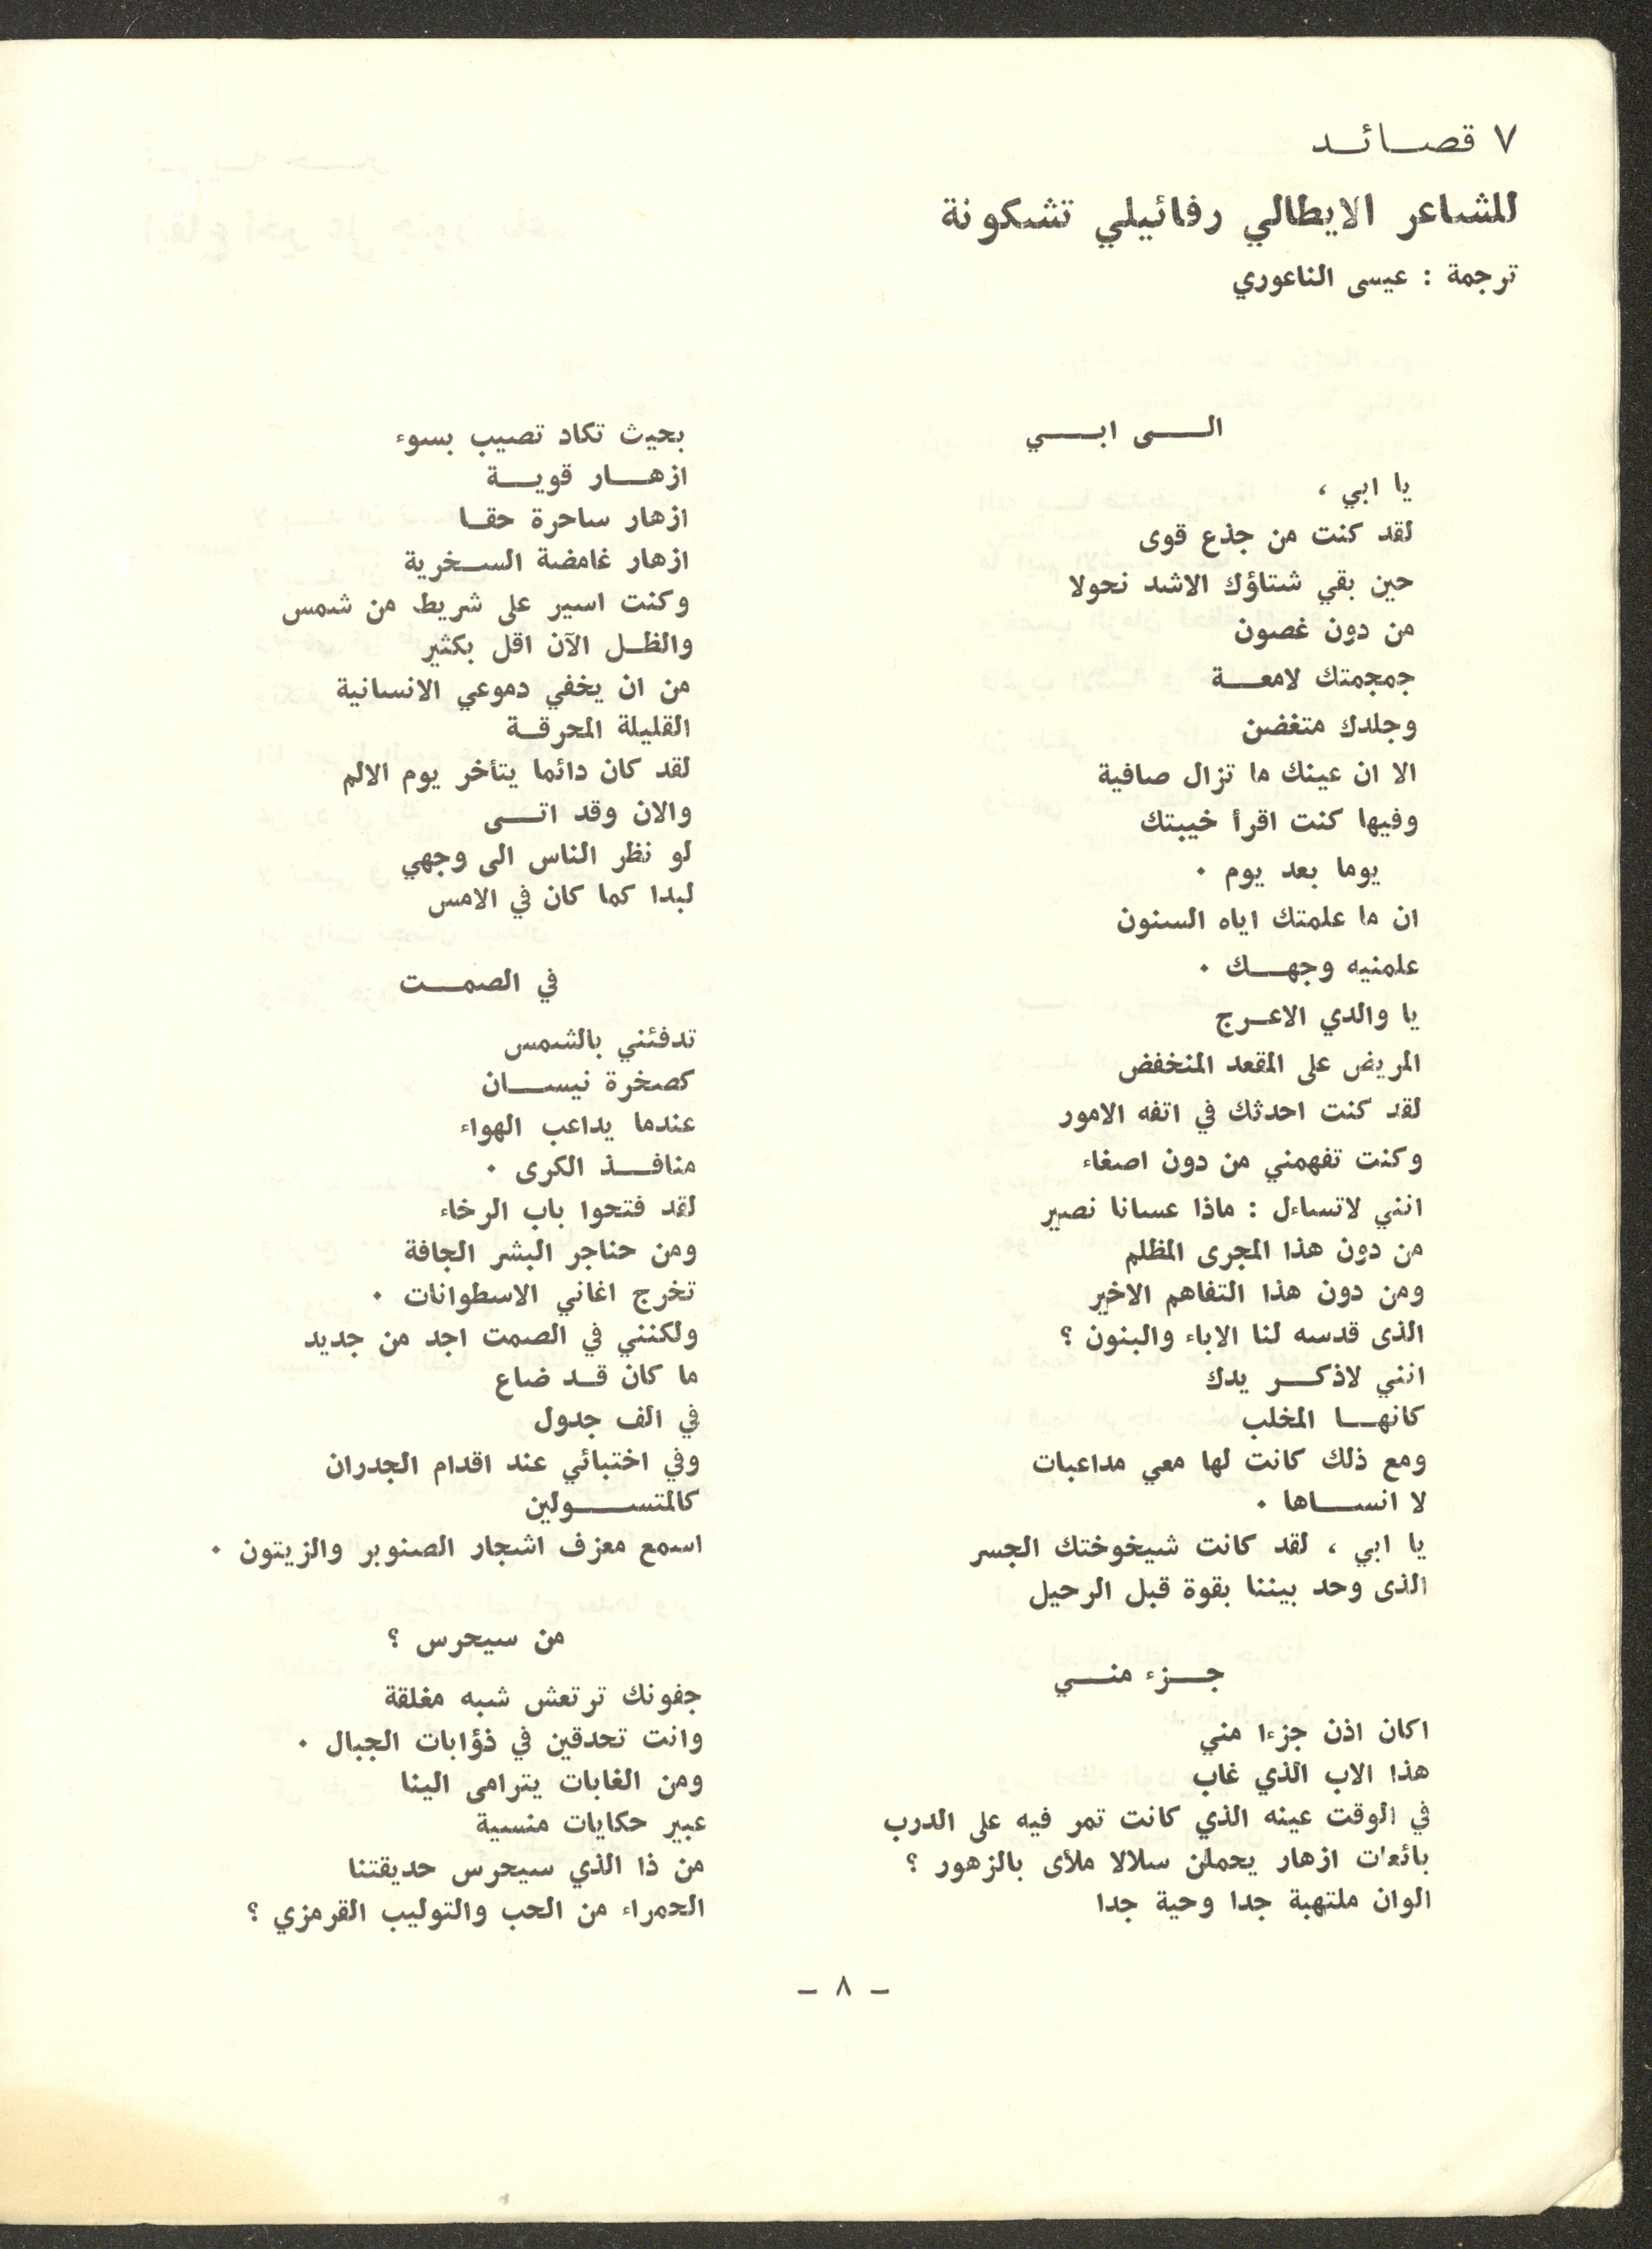 ٧ قصائد
للشاعر الايطالي رفائيلي تشكونة
ترجمة : عيسى الناعوري
الى ابي
يا ابي ،
لقد كنت من جذع قوى
حين بقي شتاؤك الاشد نحولا
من دون غصون
جمجمتك لامعة
وجلدك متغضن
الا ان عينك ما تزال صافية
وفيها كنت اقرأ خيبتك
يوما بعد يوم ٠
ان ما علمتك اياه السنون
علمنيه وجهك ٠
يا والدي الاعرج
المريض على المقعد المنخفض
لقد كنت احدثك في اتفه الامور
وكنت تفهمني من دون اصغاء
انني لاتساءل : ماذا عسانا نصير
من دون هذا المجرى المظلم
ومن دون هذا التفاهم الاخير
الذى قدسه لنا الاباء والبنون ؟
انني لاذكر يدك
كانها المخلب
ومع ذلك كانت لها معي مداعبات
لا انساها ٠
يا ابي ، لقد كانت شيخوختك الجسر
الذى وحد بيننا بقوة قبل الرحيل
جزء مني
اكان اذن جزءا مني
هذا الاب الذي غاب
في الوقت عينه الذي كانت تمر فيه على الدرب
بائعات ازهار يحملن سلالا ملأى بالزهور ؟
الوان ملتهبة جدا وحية جدا
بحيث تكاد تصيب بسوء
ازهار قوية
ازهار ساحرة حقا
ازهار غامضة السخرية
وكنت اسير على شريط من شمس
والظل الآن اقل بكثير
من ان يخفي دموعي الانسانية
القليلة المحرقة
لقد كان دائما يتأخر يوم الالم
والان وقد اتى
لو نظر الناس الى وجهي
لبدا كما كان في الامس
في الصمت
تدفئني بالشمس
كصخرة نيسان
عندما يداعب الهواء
منافذ الكرى ٠
لقد فتحوا باب الرخاء
ومن حناجر البشر الجافة
تخرج اغاني الاسطوانات ٠
ولكنني في الصمت اجد من جديد
ما كان قد ضاع
في الف جدول
وفي اختبائي عند اقدام الجدران
كالمتسولين
اسمع معزف اشجار الصنوبر والزيتون ٠
من سيحرس ؟
جفونك ترتعش شبه مغلقة
وانت تحدقين في ذؤابات الجبال ٠
ومن الغابات يترامى الينا
عبير حكايات منسية
من ذا الذي سيحرس حديقتنا
الحمراء من الحب والتوليب القرمزي ؟
– ٨ –